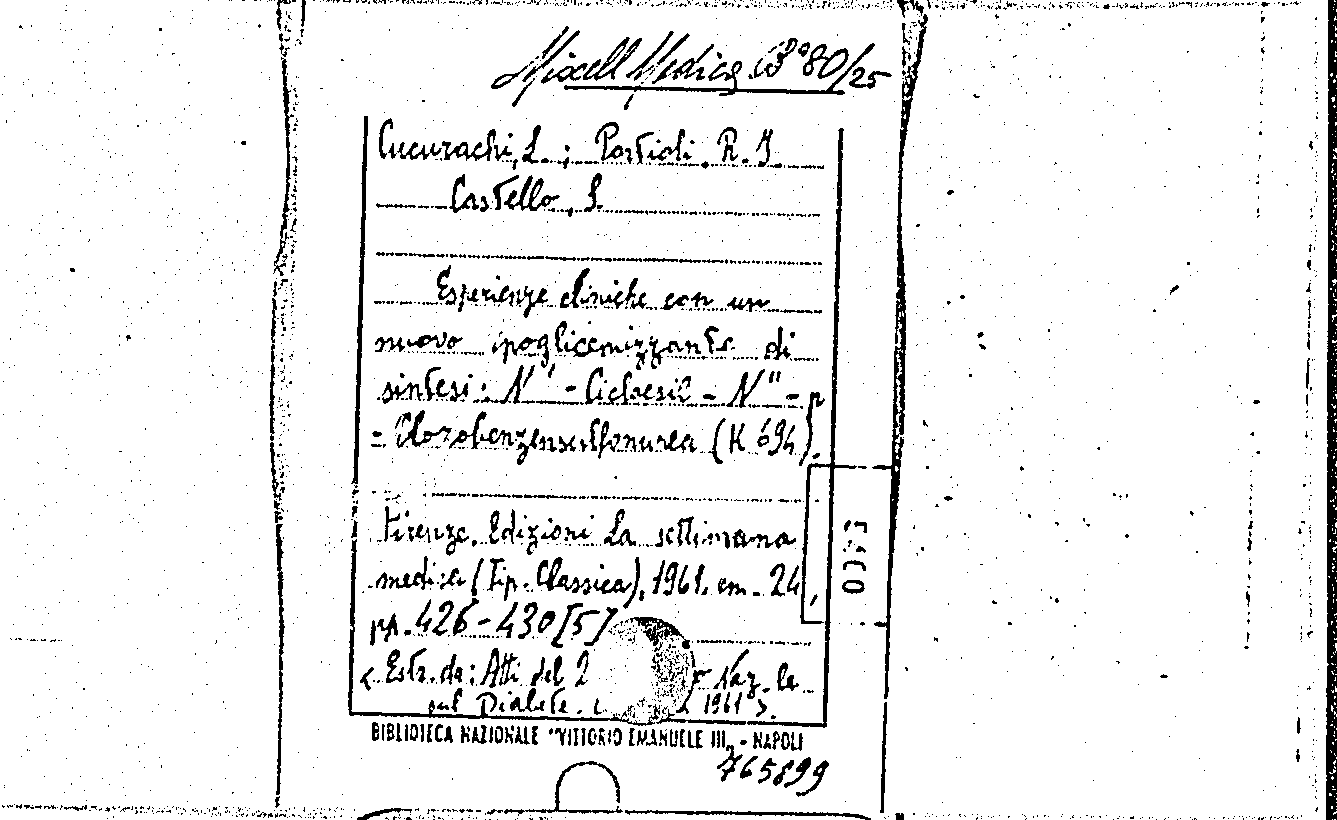 Miscell Medica B° 80/25
Cucurachi, L. ; Portioli. R. I.
Castello, S.
Esperienze cliniche con un
nuovo ipoglicemizzante di
sintesi: N' - Cicloesil - N" - p
- Clorobenzensulfonurea (K 694).
Firenze. Edizioni La settimana
medica (Tip. Classica), 1961. cm. 24,
pp. 426-430 [5]
< Estr. da: Atti del 2 Naz.le
sul Diabete. 1961 >.
BIBLIOTECA NAZIONALE "VITTORIO EMANUELE III„ - NAPOLI
765899